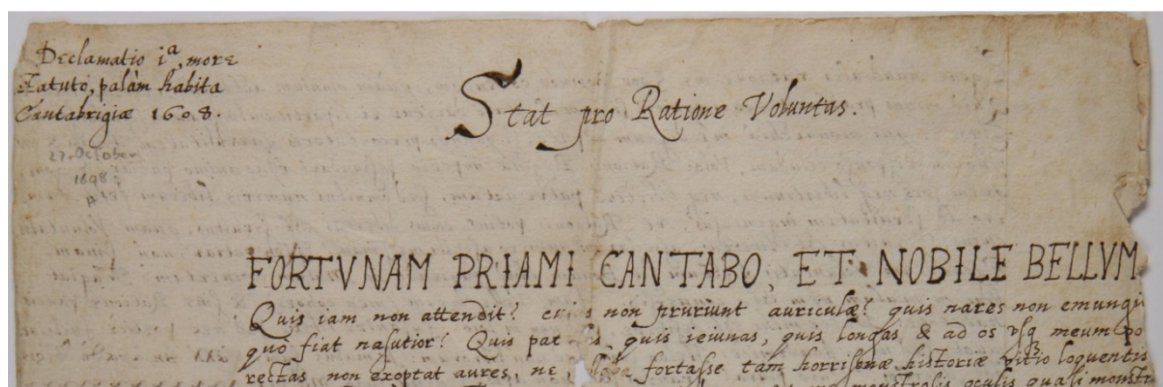 Declamatio 1ª, more
statuto, palàm habita
Cantabrigiæ 1608.
27. October
1608
Stat pro Ratione Voluntas.
FORTVNAM PRIAMI CANTABO, ET NOBILE BELLVM.
Quis iam non attendit? non pruriunt auriculæ? quis nares non emungi
quò fiat nasutior? Quis quis ieiunas, quis longas & ad os usq meum po
rectas non exoptat aures, ne fortasse tam horrisonæ historiæ vitio loquentis
oculis quali monstr